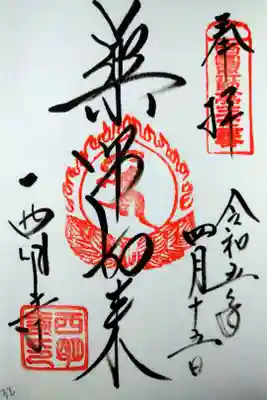 奉拝
令和五年
四月十五日
薬師如来
西明寺
西明寺